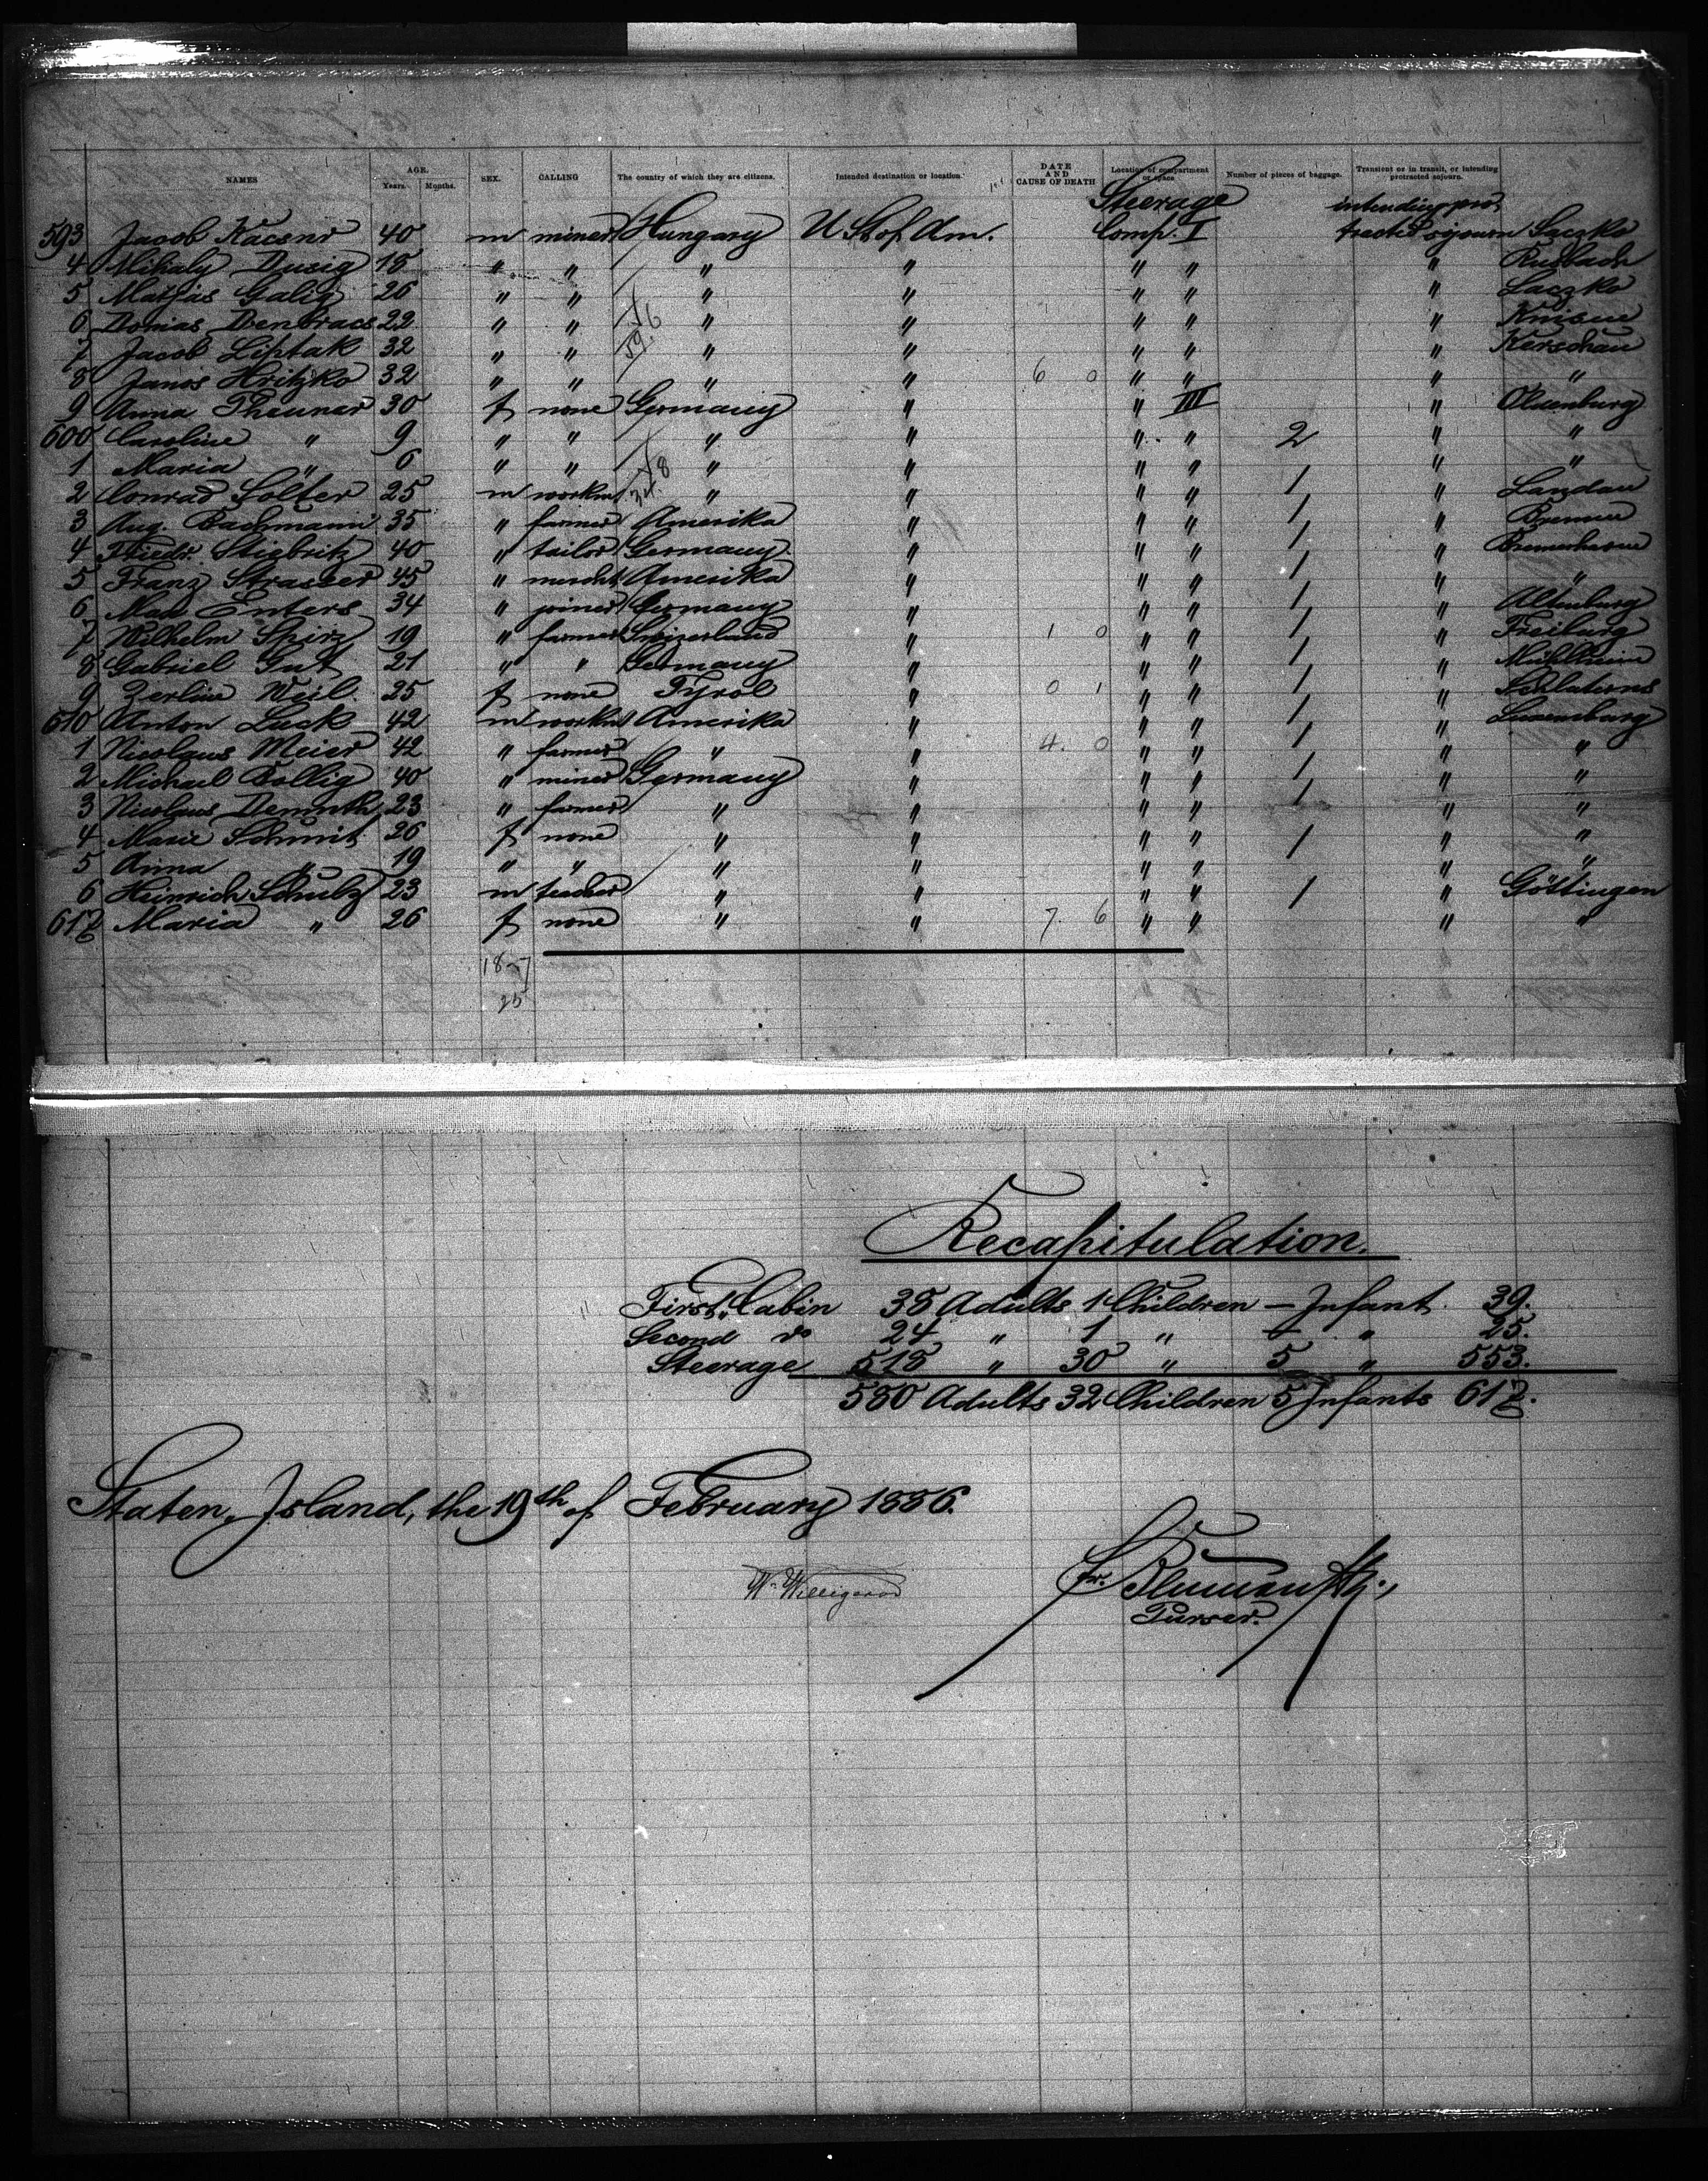 NAMES AGE. Years. Months. SEX. CALLING The country of which they are citizens. Intended destination or location. DATE AND CAUSE OF DEATH Location of compartment or space Number of pieces of baggage. Transient or in transit, or intending protracted sojourn.
Steerage intending pro
593 Jacob Kacsnr 40 m miner Hungary U St of Am. Comp. I tracted sojourn Laczko
4 Mihaly Dusig 18 " " " " " " " Rusbach
5 Matjas Galig 26 " " " " " " " Laczko
6 Domias Denbracs 22 " " " " " " "
7 Jacob Liptak 32 " " " " " " " Kerschau
8 Janos Hritzko 32 " " " " 6 0 " " " "
9 Anna Theunar 30 f none Germany " " III " Oldenburg
600 Caroline " 9 " " " " " " 2 " "
1 Maria " 6 " " " " " " " "
2 Conrad Solter 25 m workm " " " " 1 " Landau
3 Aug. Bachmann 35 " farmer Amerika " " " 1 " Bremen
4 Friedr. Stiebritz 40 " tailor Germany " " " 1 " Bremerhaven
5 Franz Strasser 45 " mercht Amerika " " " 1 " "
6 Max Enters 34 " joiner Germany " " " 1 " Altenburg
7 Wilhelm Spirz 19 " farmer Swizerland " 1 0 " " 1 " Freiburg
8 Gabriel Gut 21 " " Germany " " " 1 " Mühlheim
9 Zerline Weil. 25 f none Tyrol " 0 1 " " 1 " Schlaterns
610 Anton Luck 42 m workm Amerika " " " 1 " Luxemburg
1 Nicolaus Meier 42 " farmer " " 4. 0 " " 1 " "
2 Michael Bollig 40 " miner Germany " " " 1 " "
3 Nicolaus Demuth 23 " farmer " " " " 1 " "
4 Marie Schmit 26 f none " " " " 1 " "
5 Anna " 19 " " " " " " " "
6 Heinrich Schulz 23 m teacher " " " " 1 " Göttingen
617 Maria " 26 f none " " 7. 6 " " " "
18-7
25
Recapitulation.
First Cabin 38 Adults 1 Children — Infant. 39.
Second do 24 " 1 " — " 25.
Steerage 518 " 30 " 5 " 553.
580 Adults 32 Children 5 Infants 617.
Staten Island, the 19th of February 1886.
W. Willigerod
Purser.